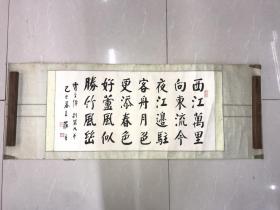 西江萬里
向東流今
夜江邊駐
客舟月色
更添春色
好蘆風似
勝竹風幽